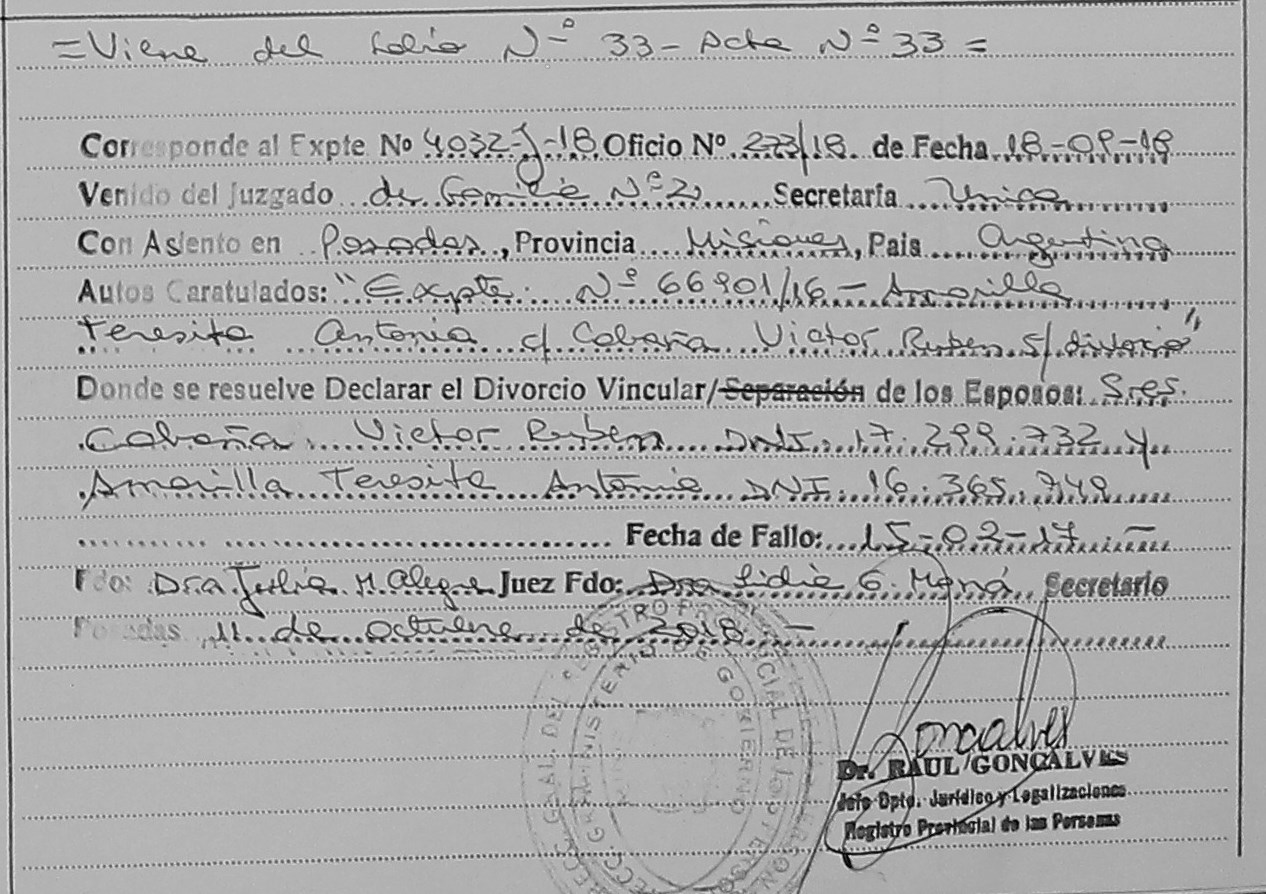 =Viene del folio Nº 33 - Acta Nº 33 =
Corresponde al Expte Nº 4032-J-18 Oficio Nº 273/18 de Fecha 18-09-18
Venido del Juzgado de Familia Nº 2 Secretaría Unica
Con Asiento en Posadas, Provincia Misiones, Pais Argentina
Autos Caratulados: "Expte. Nº 66901/16 - Amarilla
Teresita Antonia c/ Cabaña Victor Ruben s/divorcio"
Donde se resuelve Declarar el Divorcio Vincular/Separación de los Esposos: Sres.
Cabaña Victor Ruben DNI. 17.299.732 y
Amarilla Teresita Antonia DNI. 16.365.749
Fecha de Fallo: 15-02-17.-
Fdo: Dra Julia M. Alegre Juez Fdo: Dra Lidia G. Secretario
Posadas 11 de octubre de 2018 -
Goncalves
Dr. RAUL GONCALVES
Jefe Dpto. Jurídico y Legalizaciones
Registro Provincial de las Personas
MINISTERIO DE GOBIERNO